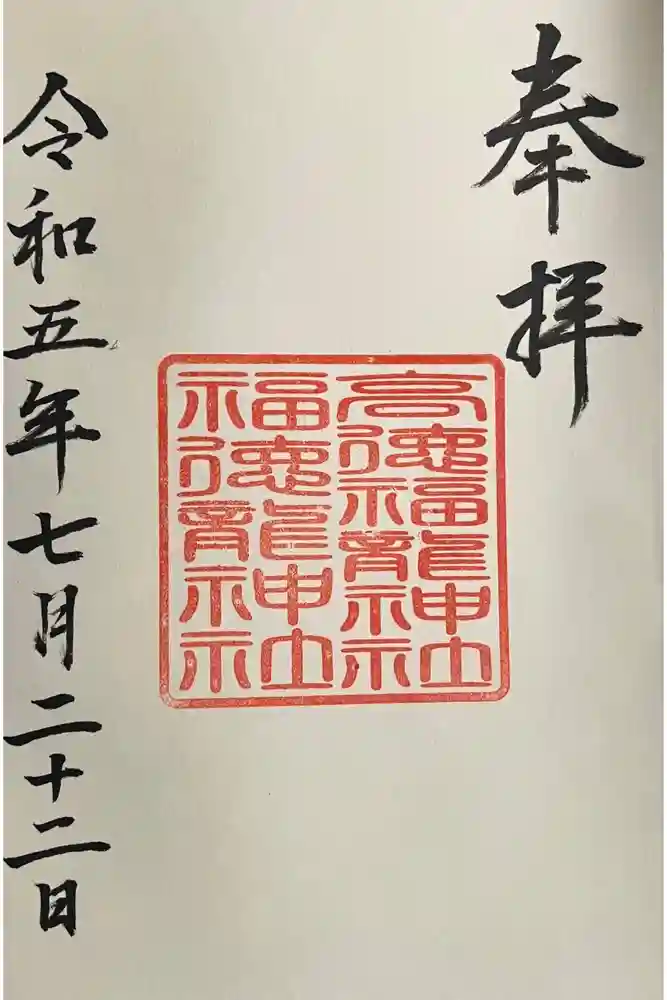 奉拝
高德福龍神社
福德龍神社
令和五年七月二十二日